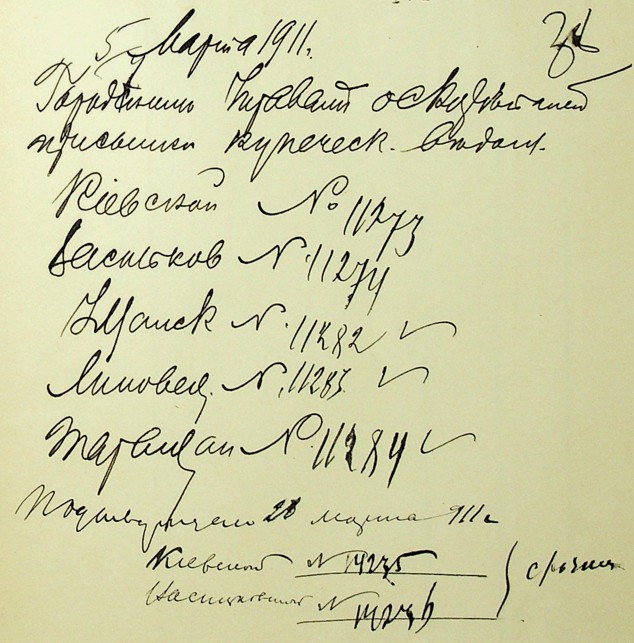 5 Марта 1911.
Городским Управам о
присылки купеческ.
Кіевской № 11273
Васильков № 11274
Уманск № 11282
Липовец. № 11283
Таращан № 11284
Подтверждено 28 марта 911 г
Кіевской № 14235
Васильковской № 14236
срочно